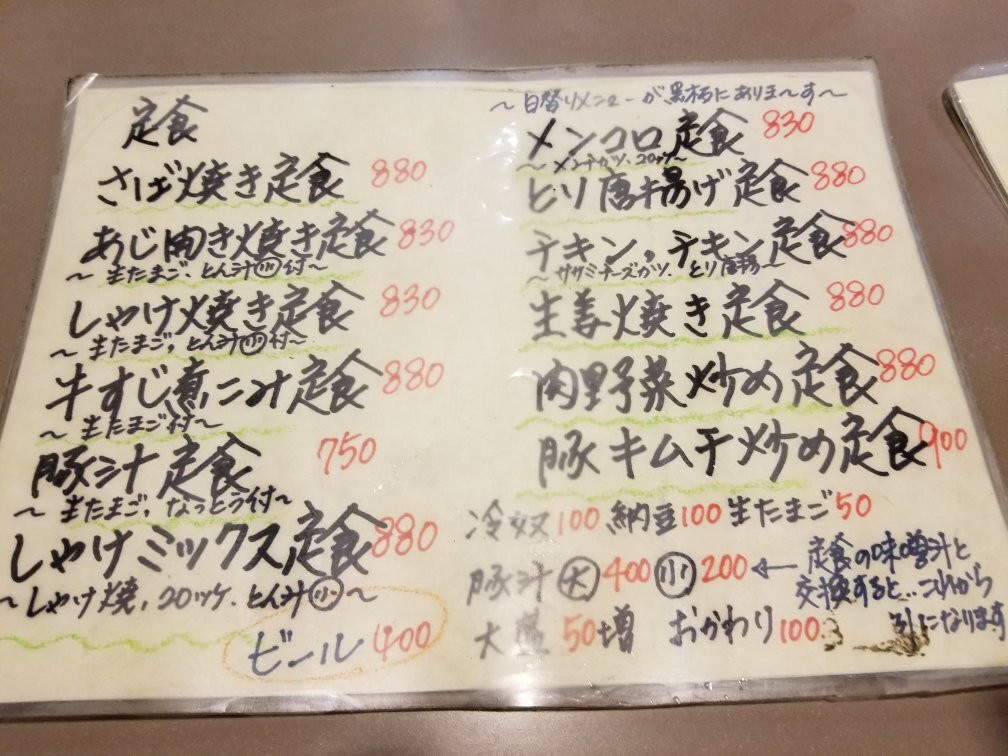 定食
さば焼き定食 880
あじ開き焼き定食 830
〜生たまご、とん汁小付〜
しゃけ焼き定食 830
〜生たまご、とん汁小付〜
牛すじ煮こみ定食 880
〜生たまご付〜
豚汁定食 750
〜生たまご、なっとう付〜
しゃけミックス定食 880
〜しゃけ焼、コロッケ、とん汁小〜
ビール 400
〜日替りメニューが黒板にありま〜す〜
メンコロ定食 830
〜メンチカツ、コロッケ〜
とり唐揚げ定食 880
チキン、チキン定食 880
〜ササミチーズカツ、とり唐揚〜
生姜焼き定食 880
肉野菜炒め定食 880
豚キムチ炒め定食 900
冷奴100 納豆100 生たまご50
豚汁 大400 小200 ← 定食の味噌汁と
交換すると…これから
引になります
大盛50増 おかわり100